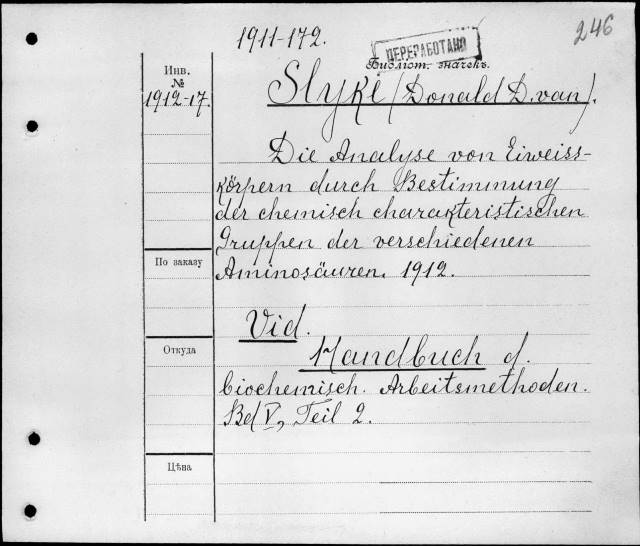 1911-172.
246
ПЕРЕРАБОТАНО
Библіот. значекъ.
Инв.
№
1912-17.
Slyke (Donald D. van).
Die Analyse von Eiweiss-
körpern durch Bestimmung
der chemisch charakteristischen
Gruppen der verschiedenen
Aminosäuren. 1912.
По заказу
Vid.
Откуда
Handbuch d.
biochemisch. Arbeitsmethoden.
Bd V, Teil 2.
Цѣна